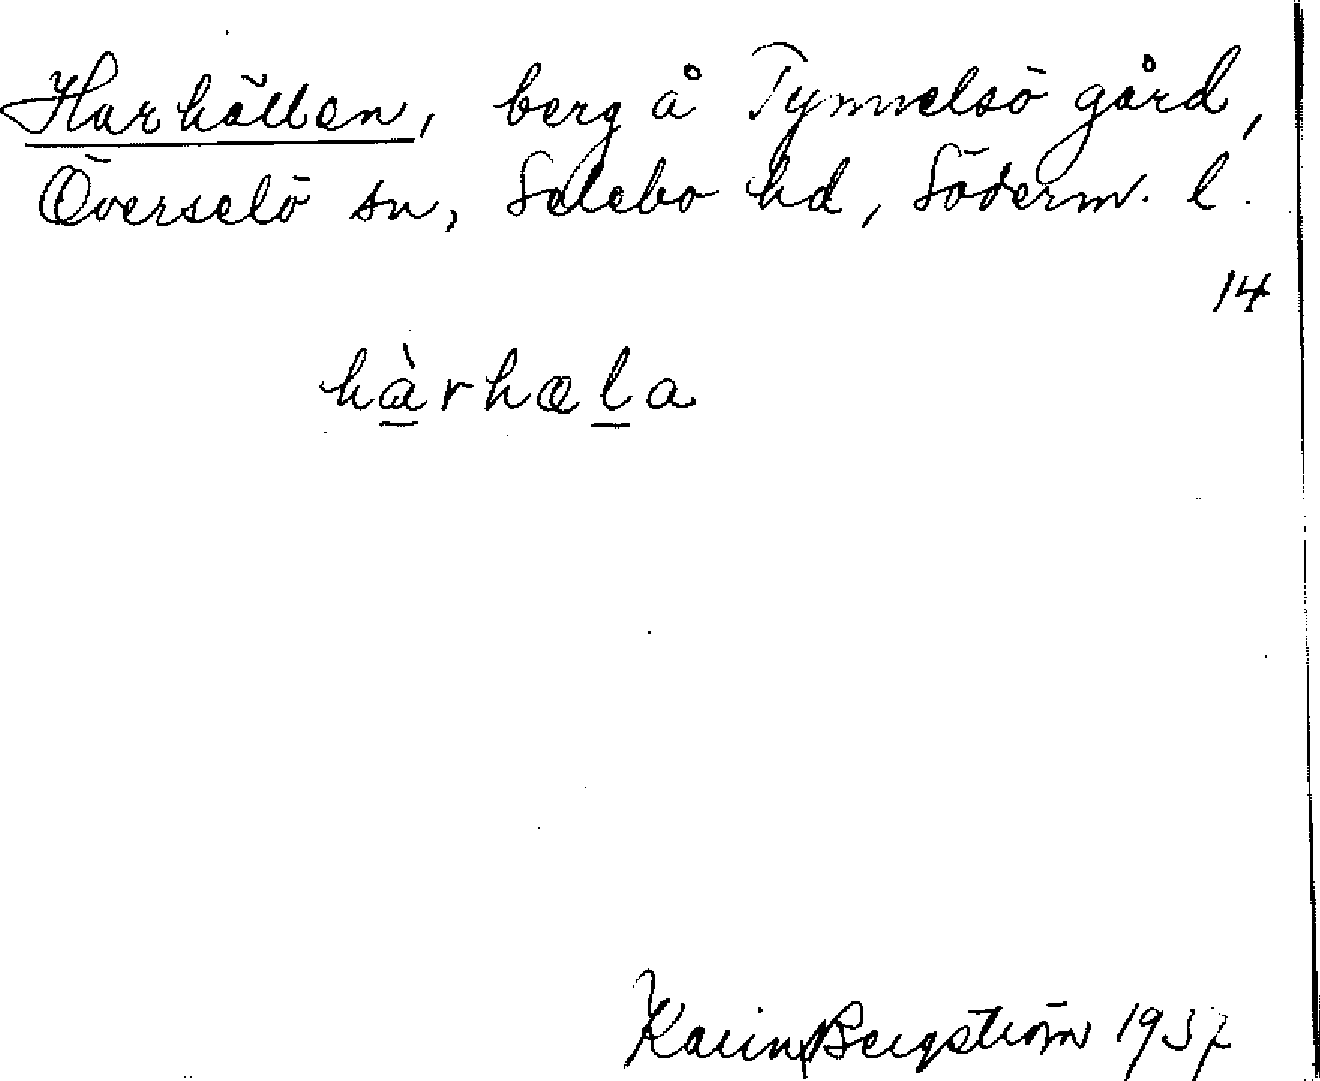 Harhällen, berg å Tynnelsö gård,
Överselö sn, Selebo hd, Söderm. l.
14
hàrhæla
Karin Bergström 1937